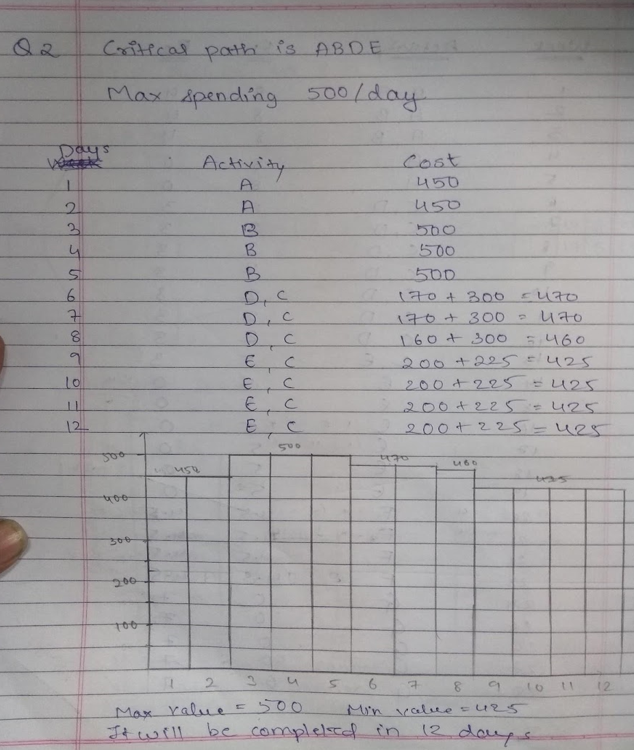 Q2 Critical path is ABDE
Max spending 500/day
Days Activity Cost
1 A 450
2 A 450
3 B 500
4 B 500
5 B 500
6 D, C 170 + 300 = 470
7 D, C 170 + 300 = 470
8 D, C 160 + 300 = 460
9 E, C 200 + 225 = 425
10 E, C 200 + 225 = 425
11 E, C 200 + 225 = 425
12 E, C 200 + 225 = 425
500 500
450 470 460
425
400
300
200
100
1 2 3 4 5 6 7 8 9 10 11 12
Max value = 500 Min value = 425
It will be completed in 12 days